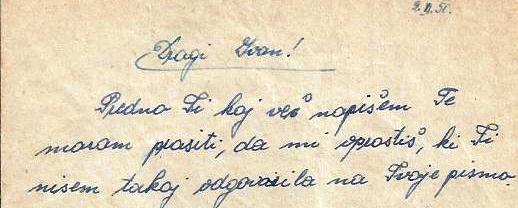 9.II.51.
Dragi Ivan!
Predno Ti kaj več napišem Te
moram prositi, da mi oprostiš, ki Ti
nisem takoj odgovorila na Tvoje pismo.